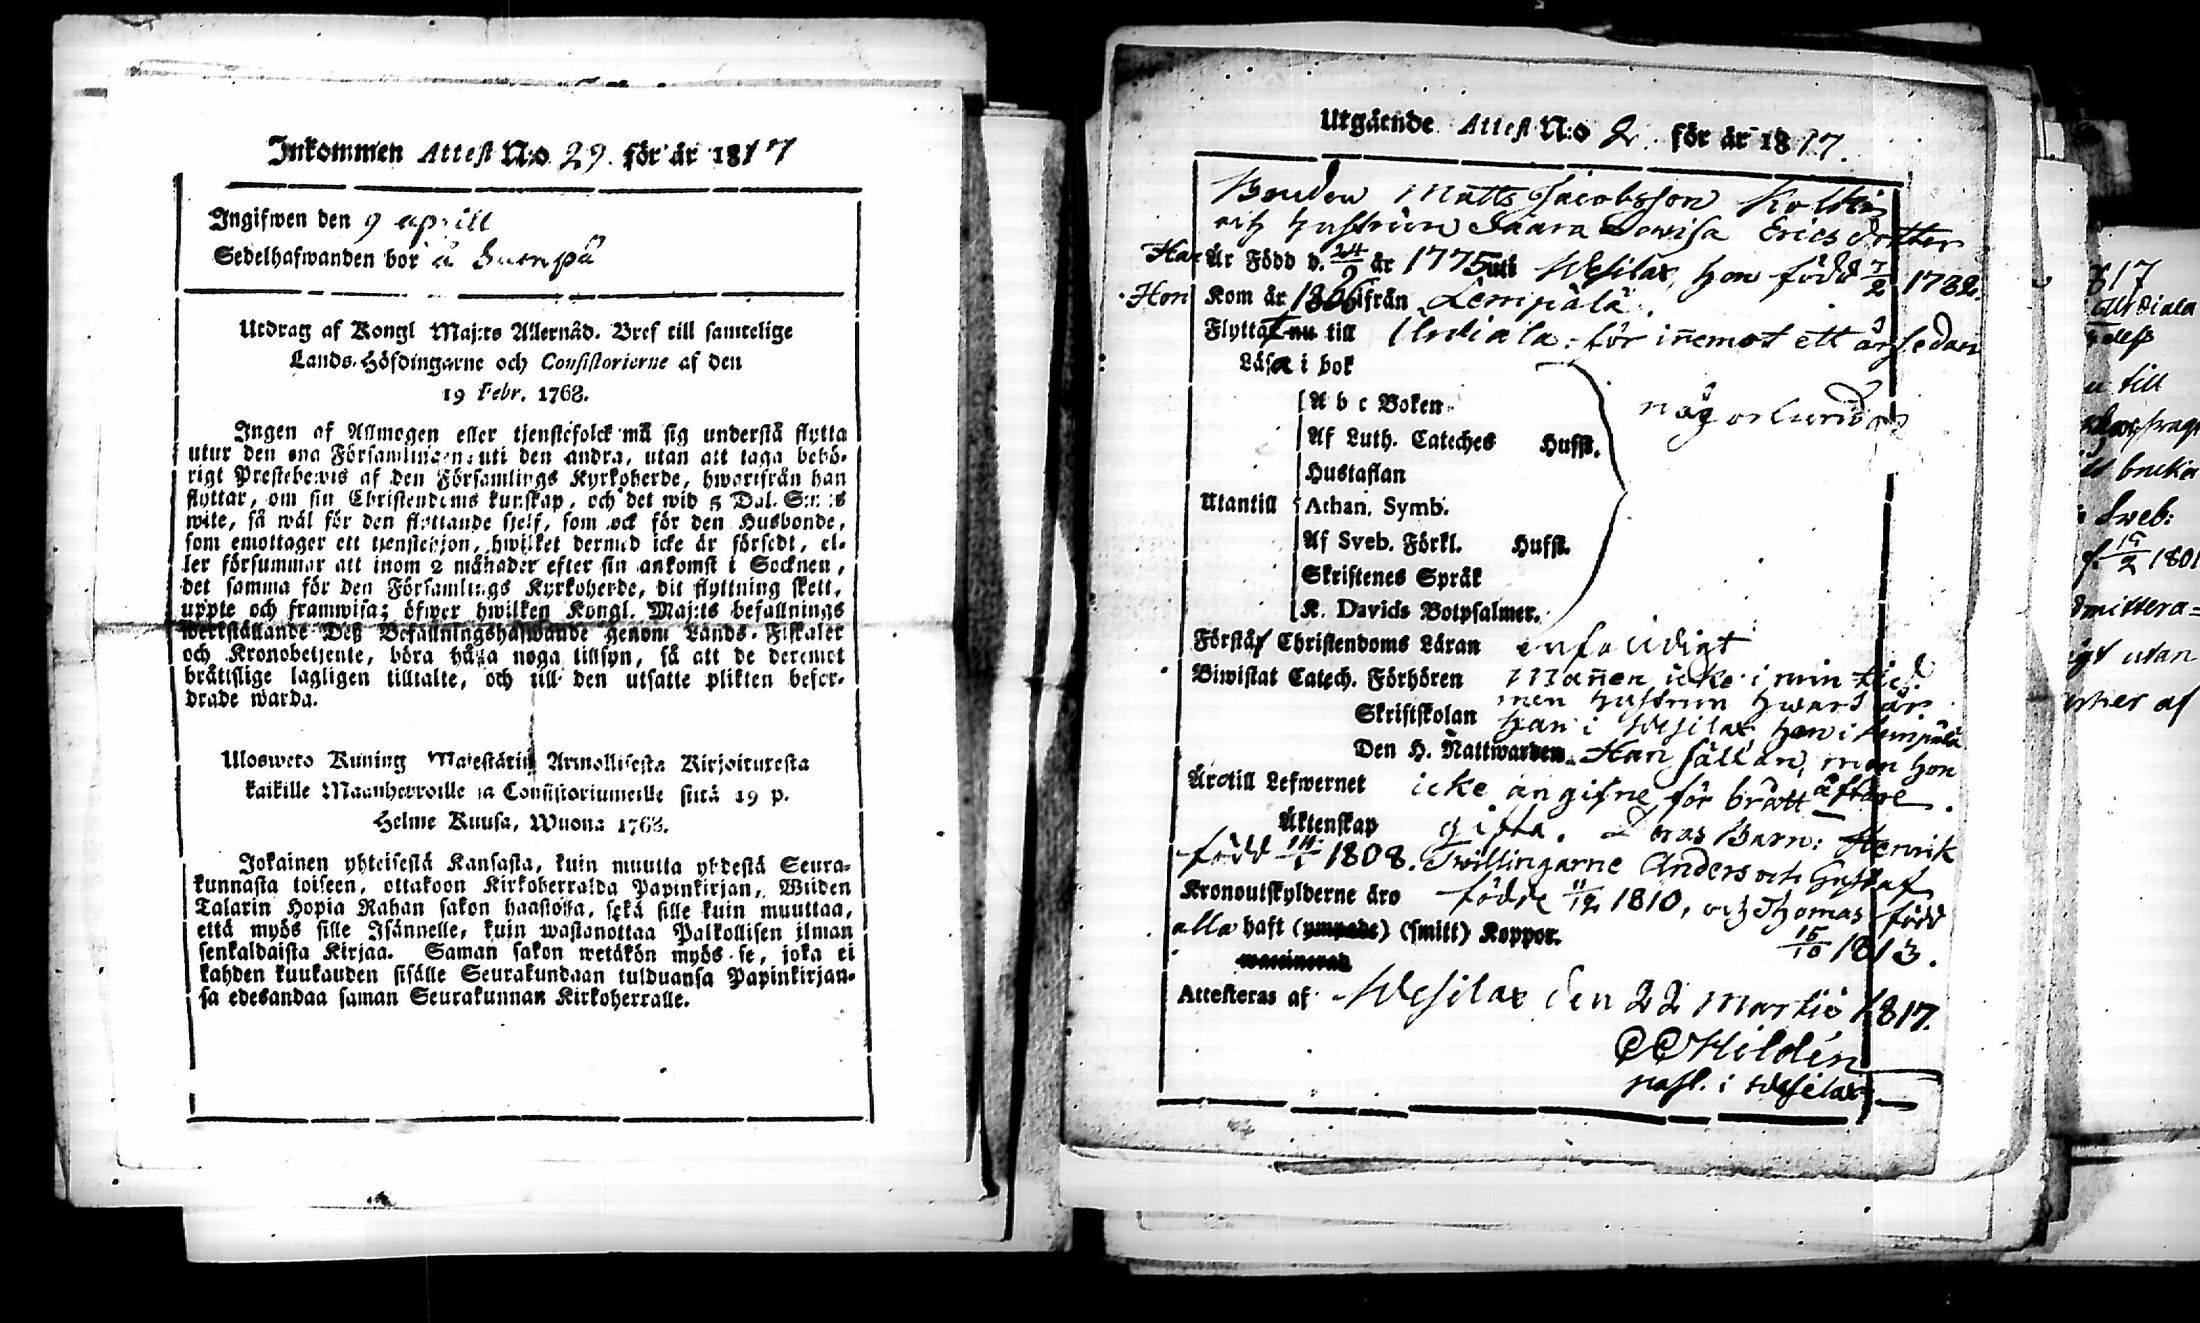 Inkommen Attest N:o 29. för år 1817
Ingifwen den 9 aprill
Sedelhafwanden bor å
Utdrag af Kongl Maj:ts Allernåd. Bref till samtelige
Lands-Höfdingarne och Consistorierne af den
19 Febr. 1768.
Ingen af Allmogen eller tjenstefolck må sig understå flytta
utur den ena Församlingen uti den andra, utan att taga behö-
rigt Prestebewis af den Församlings Kyrkoherde, hwarifrån han
flyttar, om sin Christendoms kunskap, och det wid 5 Dal. S:mts
wite, så wäl för den flyttande sjelf, som ock för den Husbonde,
som emottager ett tjenstehjon, hwilket dermed icke är försedt, el-
ler försummar att inom 2 månader efter sin ankomst i Socknen,
det samma för den Församlings Kyrkoherde, dit flyttning skett,
uppte och framwisa; öfwer hwilken Kongl. Maj:ts befallnings
werkställande Deß Befallningshafwande genom Lands-Fiskaler
och Kronobetjente, böra hålla noga tillsyn, så att de deremot
bråttslige lagligen tilltalte, och till den utsatte plikten befor-
drade warda.
Ulosweto Kuning Majestätin Armollisesta Kirjoituxesta
kaikille Maanherroille ja Consistoriumeille siitä 19 p.
Helme Kuusa, Wuona 1768.
Jokainen yhteisestä Kansasta, kuin muutta yhdestä Seura-
kunnasta toiseen, ottakoon Kirkoherralda Papinkirjan, Wiiden
Talarin Hopia Rahan sakon haastolla, sekä sille kuin muuttaa,
että myös sille Isännelle, kuin wastanottaa Palkollisen ilman
senkaldaista Kirjaa. Saman sakon wetäkön myös se, joka ei
kahden kuukauden sisälle Seurakundaan tulduansa Papinkirjan-
sa edesandaa saman Seurakunnan Kirkoherralle.
Utgående Attest N:o 2. för år 1817.
Bonden Matts Jacobsson
och hustrun Saara Lovisa Ericsdotter
Han Är Född d. 24/9 år 1775 uti Wesilax, hon född 7/2 1782.
Hon Kom år 1806 ifrån Lempälä.
Flyttat nu till Urdiala för inemot ett år sedan
Läsa i bok
A b c Boken
någorlunda
Af Luth. Cateches Hufst.
Hustaflan
Utantill Athan. Symb.
Af Sveb. Förkl. Hufst.
Skriftenes Språk
K. Davids Botpsalmer.
Förstå Christendoms Läran enfaldigt
Biwistat Catech. Förhören Mannen icke i min tid
men hustrun hwart år
Skriftskolan Han i Wesilax hon i Lempälä
Den H. Nattwarden Han sällan, men hon
oftare.
Äro till Lefwernet icke angifne för brott
Äktenskap gifta. Deras Barn: Henrik
född 14/1 1808. Twillingarne Anders och Gustaf
Kronoutskylderne äro födde 11/12 1810, och Thomas född
15/10 1813.
alla haft (ympade) (smitt) Koppor.
waccinerad
Attesteras af Wesilax den 22 Martii 1817.
CC Hildén
past. i Wesilax